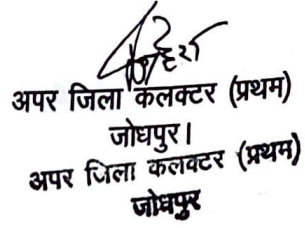 अपर जिला कलक्टर (प्रथम)
जोधपुर।
अपर जिला कलक्टर (प्रथम)
जोधपुर